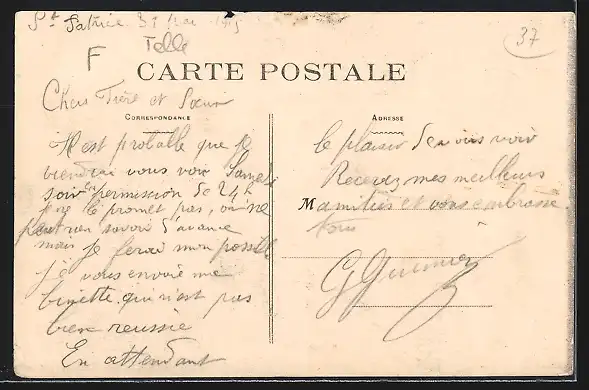 St Patrice 31 Mai 1915
37
F
Telle
CARTE POSTALE
Chers Frère et Soeur
CORRESPONDANCE
ADRESSE
Il est probable que je
viendrai vous voir Samedi
soir en permission de 24 h
je ne le promet pas, on ne
peut rien savoir d'avance
mais je ferai mon possible
je vous envoie ma
binette qui n'est pas
bien reussie
En attendant
le plaisir de vous voir
Recevez mes meilleurs
M amitiés et vous embrasse
tous
G